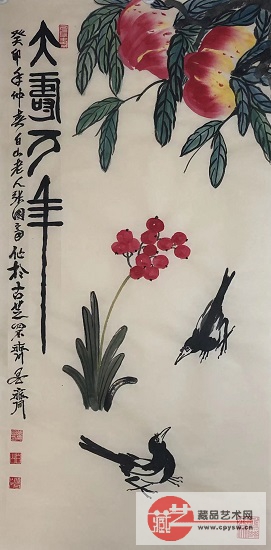 大壽万年
癸卯年仲春白山老人張國富作於古芝罘齊
藏艺
藏品艺术网
www.cpysw.cn